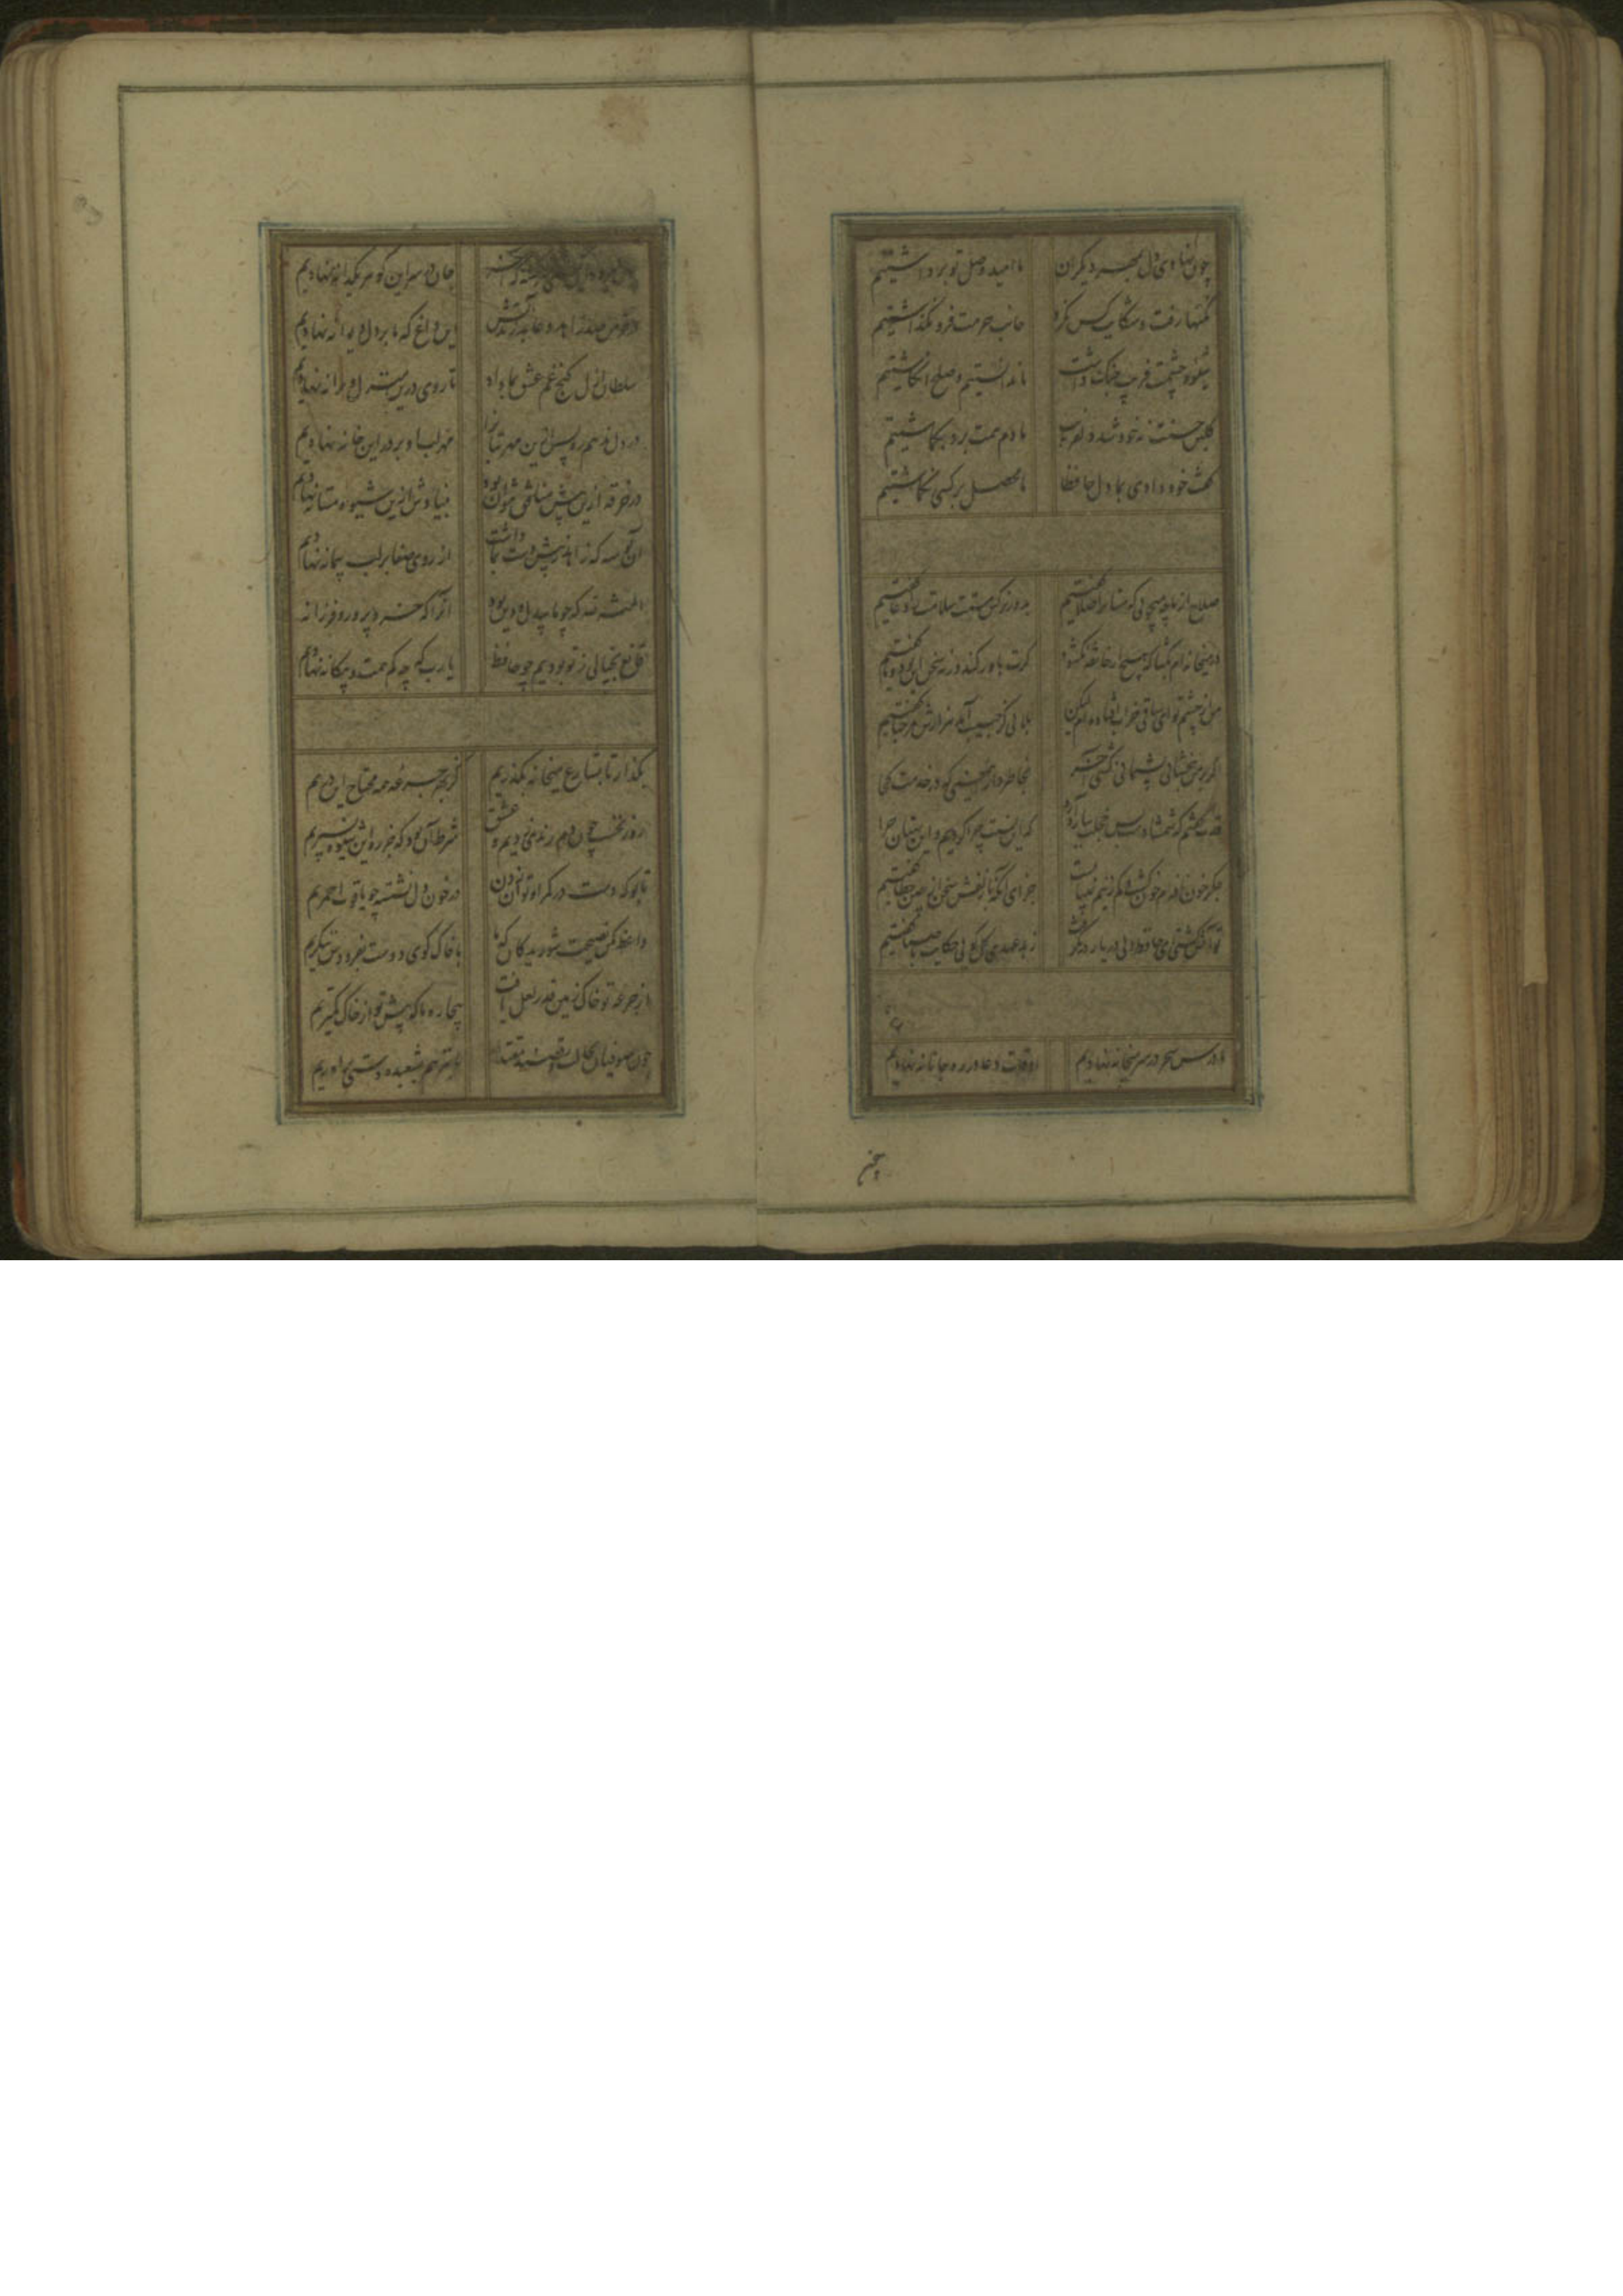 چون نهادی دل بمهر دیگران ما امید وصل تو برداشتیم
نکتها رفت و شکایت کس نکرد جانب حرمت فرو نگذاشتیم
شیوه چشمت فریب جنک داشت ما ندانستیم و صلح انکاشتیم
کلبن حسنت نه خود شد دلفریب ما دم همت برو بکماشتیم
کفت خود دادی بما دل حافظا ما محصل بر کسی نکماشتیم
صلاح از ما چه میجوئی که مستانرا صلا کفتیم بدور نرکس مستت سلامت را دعا کفتیم
در میخانه ام بکشا که هیچ از خانقه نکشود کرت باور کند ورنه سخن این بود و ما کفتیم
من از چشم تو ای ساقی خراب افتاده ام لیکن بلائی کز حبیب آید هزارش مرحبا کفتیم
اگر بر من نبخشائی پشیمانی کشی آخر بخاطر دار این معنی که در خدمت کجا
قدت کفتم که شمشادست بس خجلت ببار آورد که این نسبت چرا کردیم و این بهتان چرا
جکر خون نافه ام خون کشت کم زینم نمیبایست جزای آنکه با زلفش سخن از چین خطا کفتیم
تو آتش کشتی ای حافظ ولی در یار در نکرفت ز بد عهدی کل کوئی حکایت با صبا کفتیم
ما درس سحر در سر میخانه نهادیم اوقات دعا در ره جانانه نهادیم
جان در سر این کوهر یکدانه نهادیم
در خرمن صد زاهد و عابد زند آتش این داغ که ما بر دل دیوانه نهادیم
سلطان ازل کنج غم عشق بما داد تا روی درین منزل ویرانه نهادیم
در دل ندهم ره پس ازین مهر بتانرا مهر لب او بر در این خانه نهادیم
در خرقه ازین بیش منافق نتوان بود بنیادش ازین شیوه مستانه نهادیم
آن بوسه که زاهد ز پیش دست بما داشت از روی صفا بر لب پیمانه نهادیم
المنة لله که چو ما بیدل و دین بود آنرا که خرد پرور و فرزانه
قانع بخیالی ز تو بودیم چو حافظ یا رب که چه کم همت و بیکانه نهادیم
بکذار تا بشارع میخانه بکذریم کز بهر جرعه همه محتاج این دریم
روز نخست چون دم رندی زدیم و عشق شرط آن بود که جز ره این شیوه نسپریم
تا بو که دست در کمر او توان زدن در خون دل نشسته چو یاقوت احمریم
واعظ مکن نصیحت شوریدکان که ما با خاک کوی دوست بفردوس ننکریم
از جرعه تو خاک زمین قدر لعل یافت بیچاره ما که پیش تو از خاک کمتریم
چون صوفیان بحالت رقصند مقتدا ما نیز هم بشعبده دستی براوریم